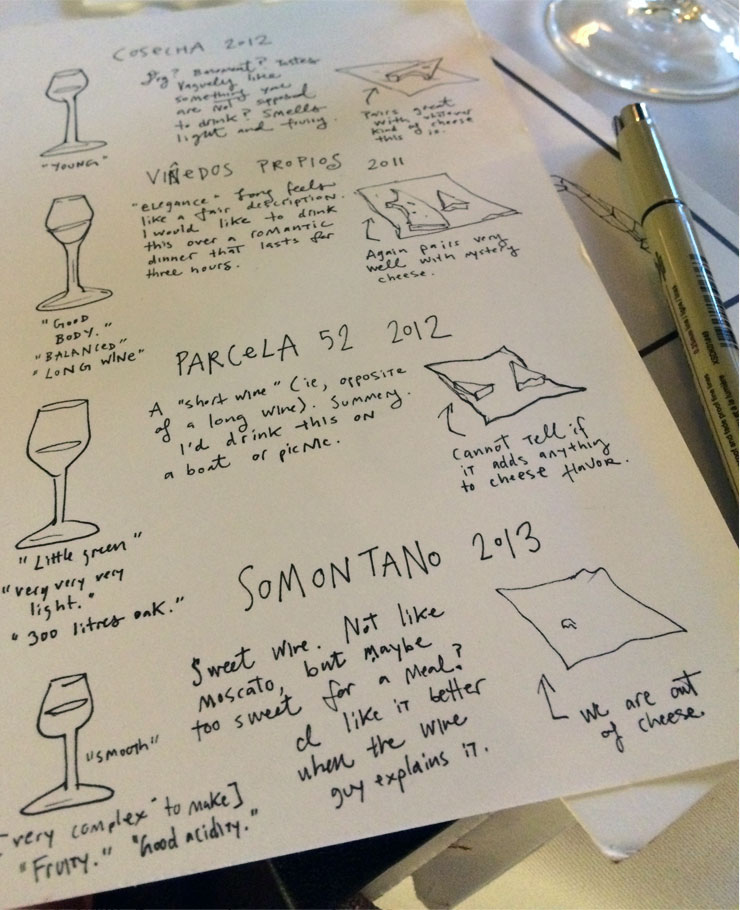 COSECHA 2012
Dry? Basement? Tastes
vaguely like
something you
are not supposed
to drink? Smells
light and fruity.
Pairs great
with whatever
kind of cheese
this is.
"YOUNG"
VIÑEDOS PROPIOS 2011
"elegance" feels
like a fair description.
I would like to drink
this over a romantic
dinner that lasts for
three hours.
Again pairs very
well with mystery
cheese.
"GOOD
BODY."
"BALANCED"
"LONG WINE"
PARCELA 52 2012
A "short wine" (ie, opposite
of a long wine). Summery.
I'd drink this on
a boat or picnic.
Cannot tell if
it adds anything
to cheese flavor.
"Little green"
"very very very
light."
"300 litres oak."
SOMONTANO 2013
Sweet wine. Not like
moscato, but maybe
too sweet for a meal?
I like it better
when the wine
guy explains it.
we are out
of cheese.
"smooth"
"very complex" to make]
"Fruity." "Good acidity."